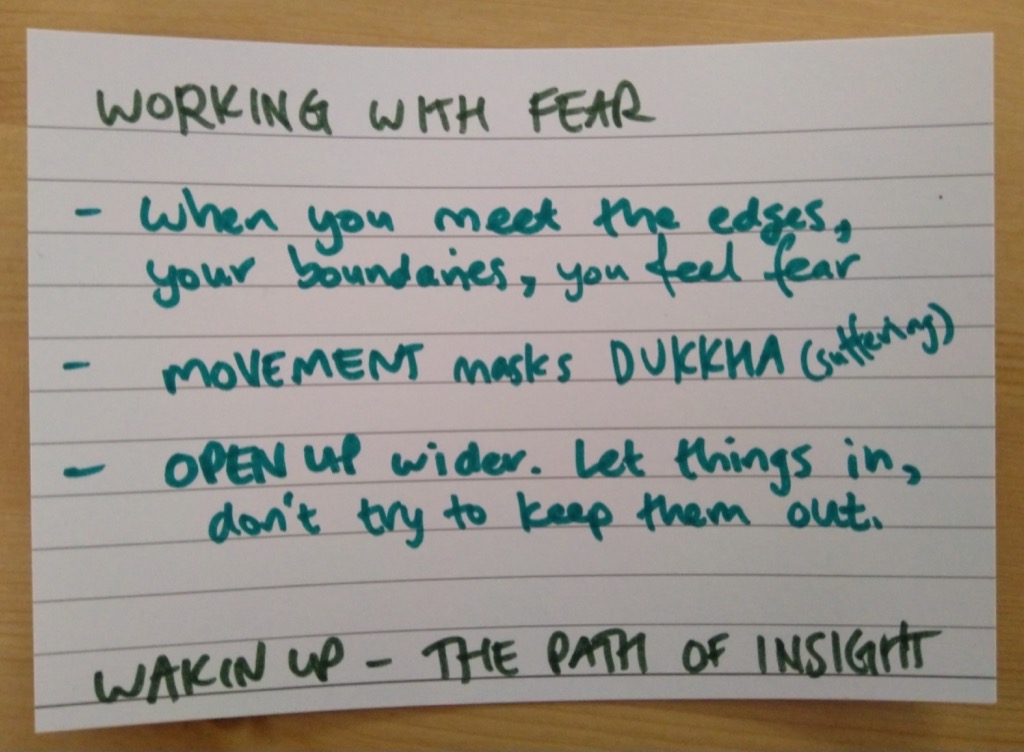 WORKING WITH FEAR
- When you meet the edges,
your boundaries, you feel fear
- MOVEMENT masks DUKKHA (suffering)
- OPEN UP wider. Let things in,
don't try to keep them out.
WAKIN UP - THE PATH OF INSIGHT